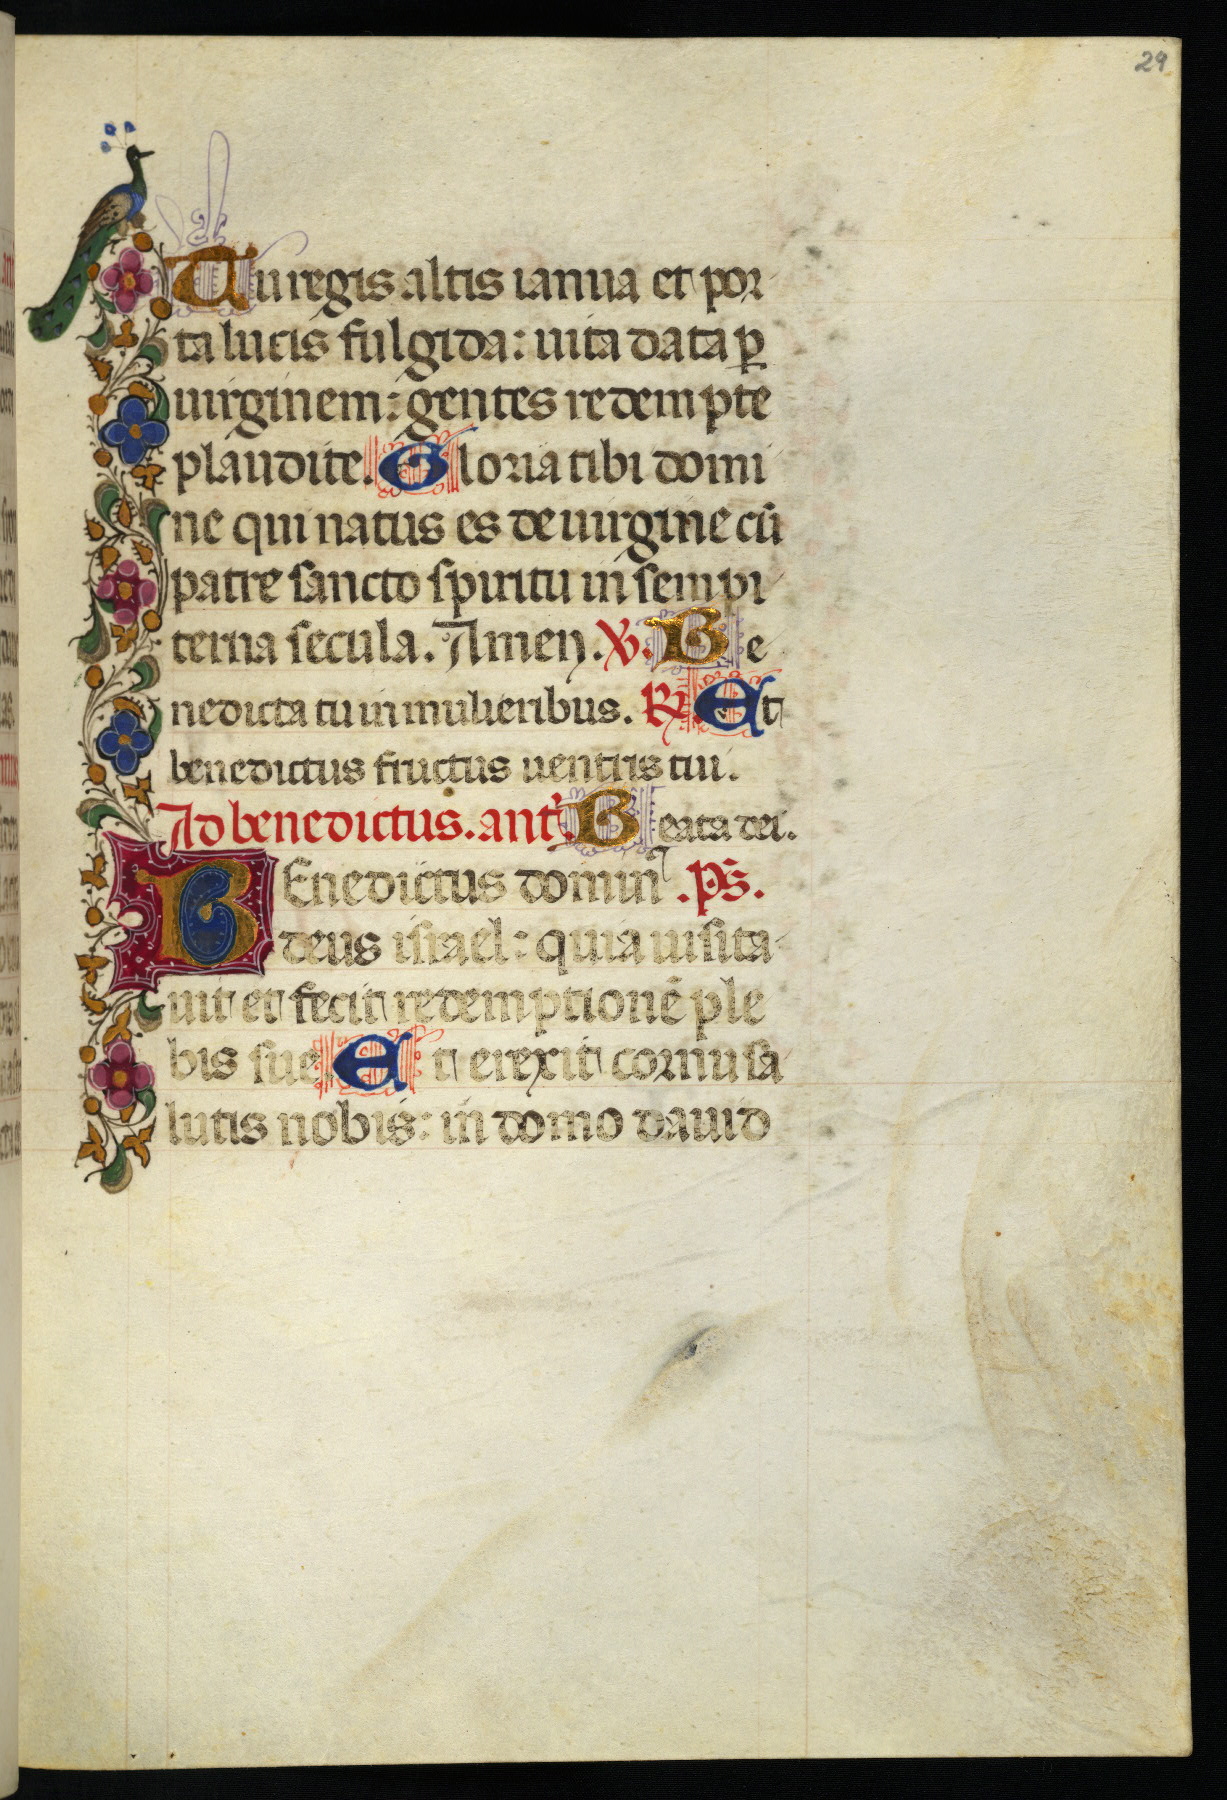 29
Tu regis altis ianua et por
ta lucis fulgida: uita data ꝑ
uirginem: gentes redempte
plaudite. Gloria tibi domi
ne qui natus es de uirgine cū
patre sancto spiritu in sempi
terna secula. Amen. ℣. Be
nedicta tu in mulieribus. ℟. Et
benedictus fructus uentris tui.
Ad benedictus. ant̄. Beata dei.
BEnedictus dominꝰ .ps.
deus israel: quia uisita
uit et fecit redemptionē ple
bis sue. Et erexit cornu sa
lutis nobis: in domo dauid